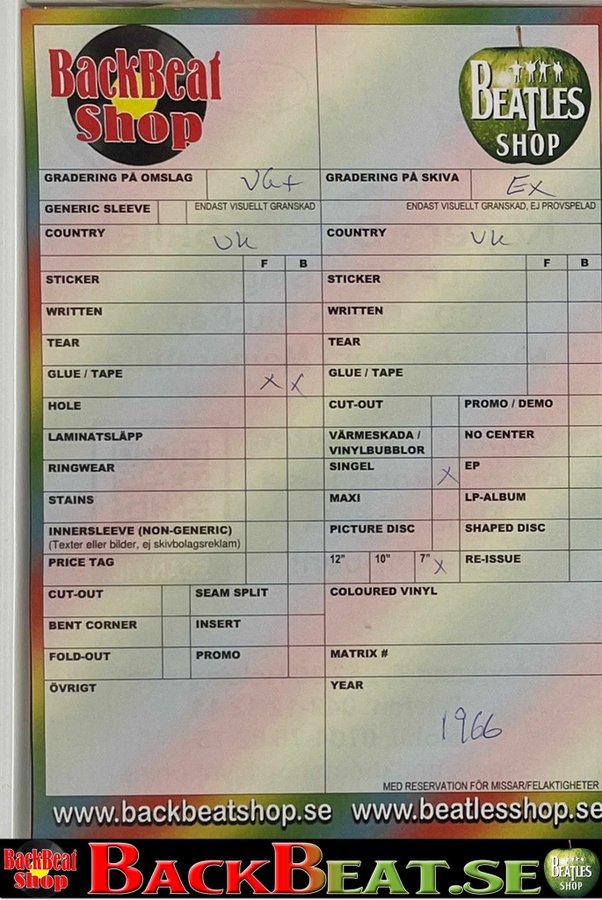 BackBeat Shop
BEATLES SHOP
GRADERING PÅ OMSLAG VG+ GRADERING PÅ SKIVA Ex
GENERIC SLEEVE ENDAST VISUELLT GRANSKAD ENDAST VISUELLT GRANSKAD, EJ PROVSPELAD
COUNTRY UK COUNTRY UK
F B F B
STICKER STICKER
WRITTEN WRITTEN
TEAR TEAR
GLUE / TAPE X X GLUE / TAPE
HOLE CUT-OUT PROMO / DEMO
LAMINATSLÄPP VÄRMESKADA / VINYLBUBBLOR NO CENTER
RINGWEAR SINGEL X EP
STAINS MAXI LP-ALBUM
INNERSLEEVE (NON-GENERIC) PICTURE DISC SHAPED DISC
(Texter eller bilder, ej skivbolagsreklam)
PRICE TAG 12" 10" 7" X RE-ISSUE
CUT-OUT SEAM SPLIT COLOURED VINYL
BENT CORNER INSERT
FOLD-OUT PROMO MATRIX #
ÖVRIGT YEAR
1966
MED RESERVATION FÖR MISSAR/FELAKTIGHETER
www.backbeatshop.se www.beatlesshop.se
BackBeat Shop BACKBEAT.SE BEATLES SHOP